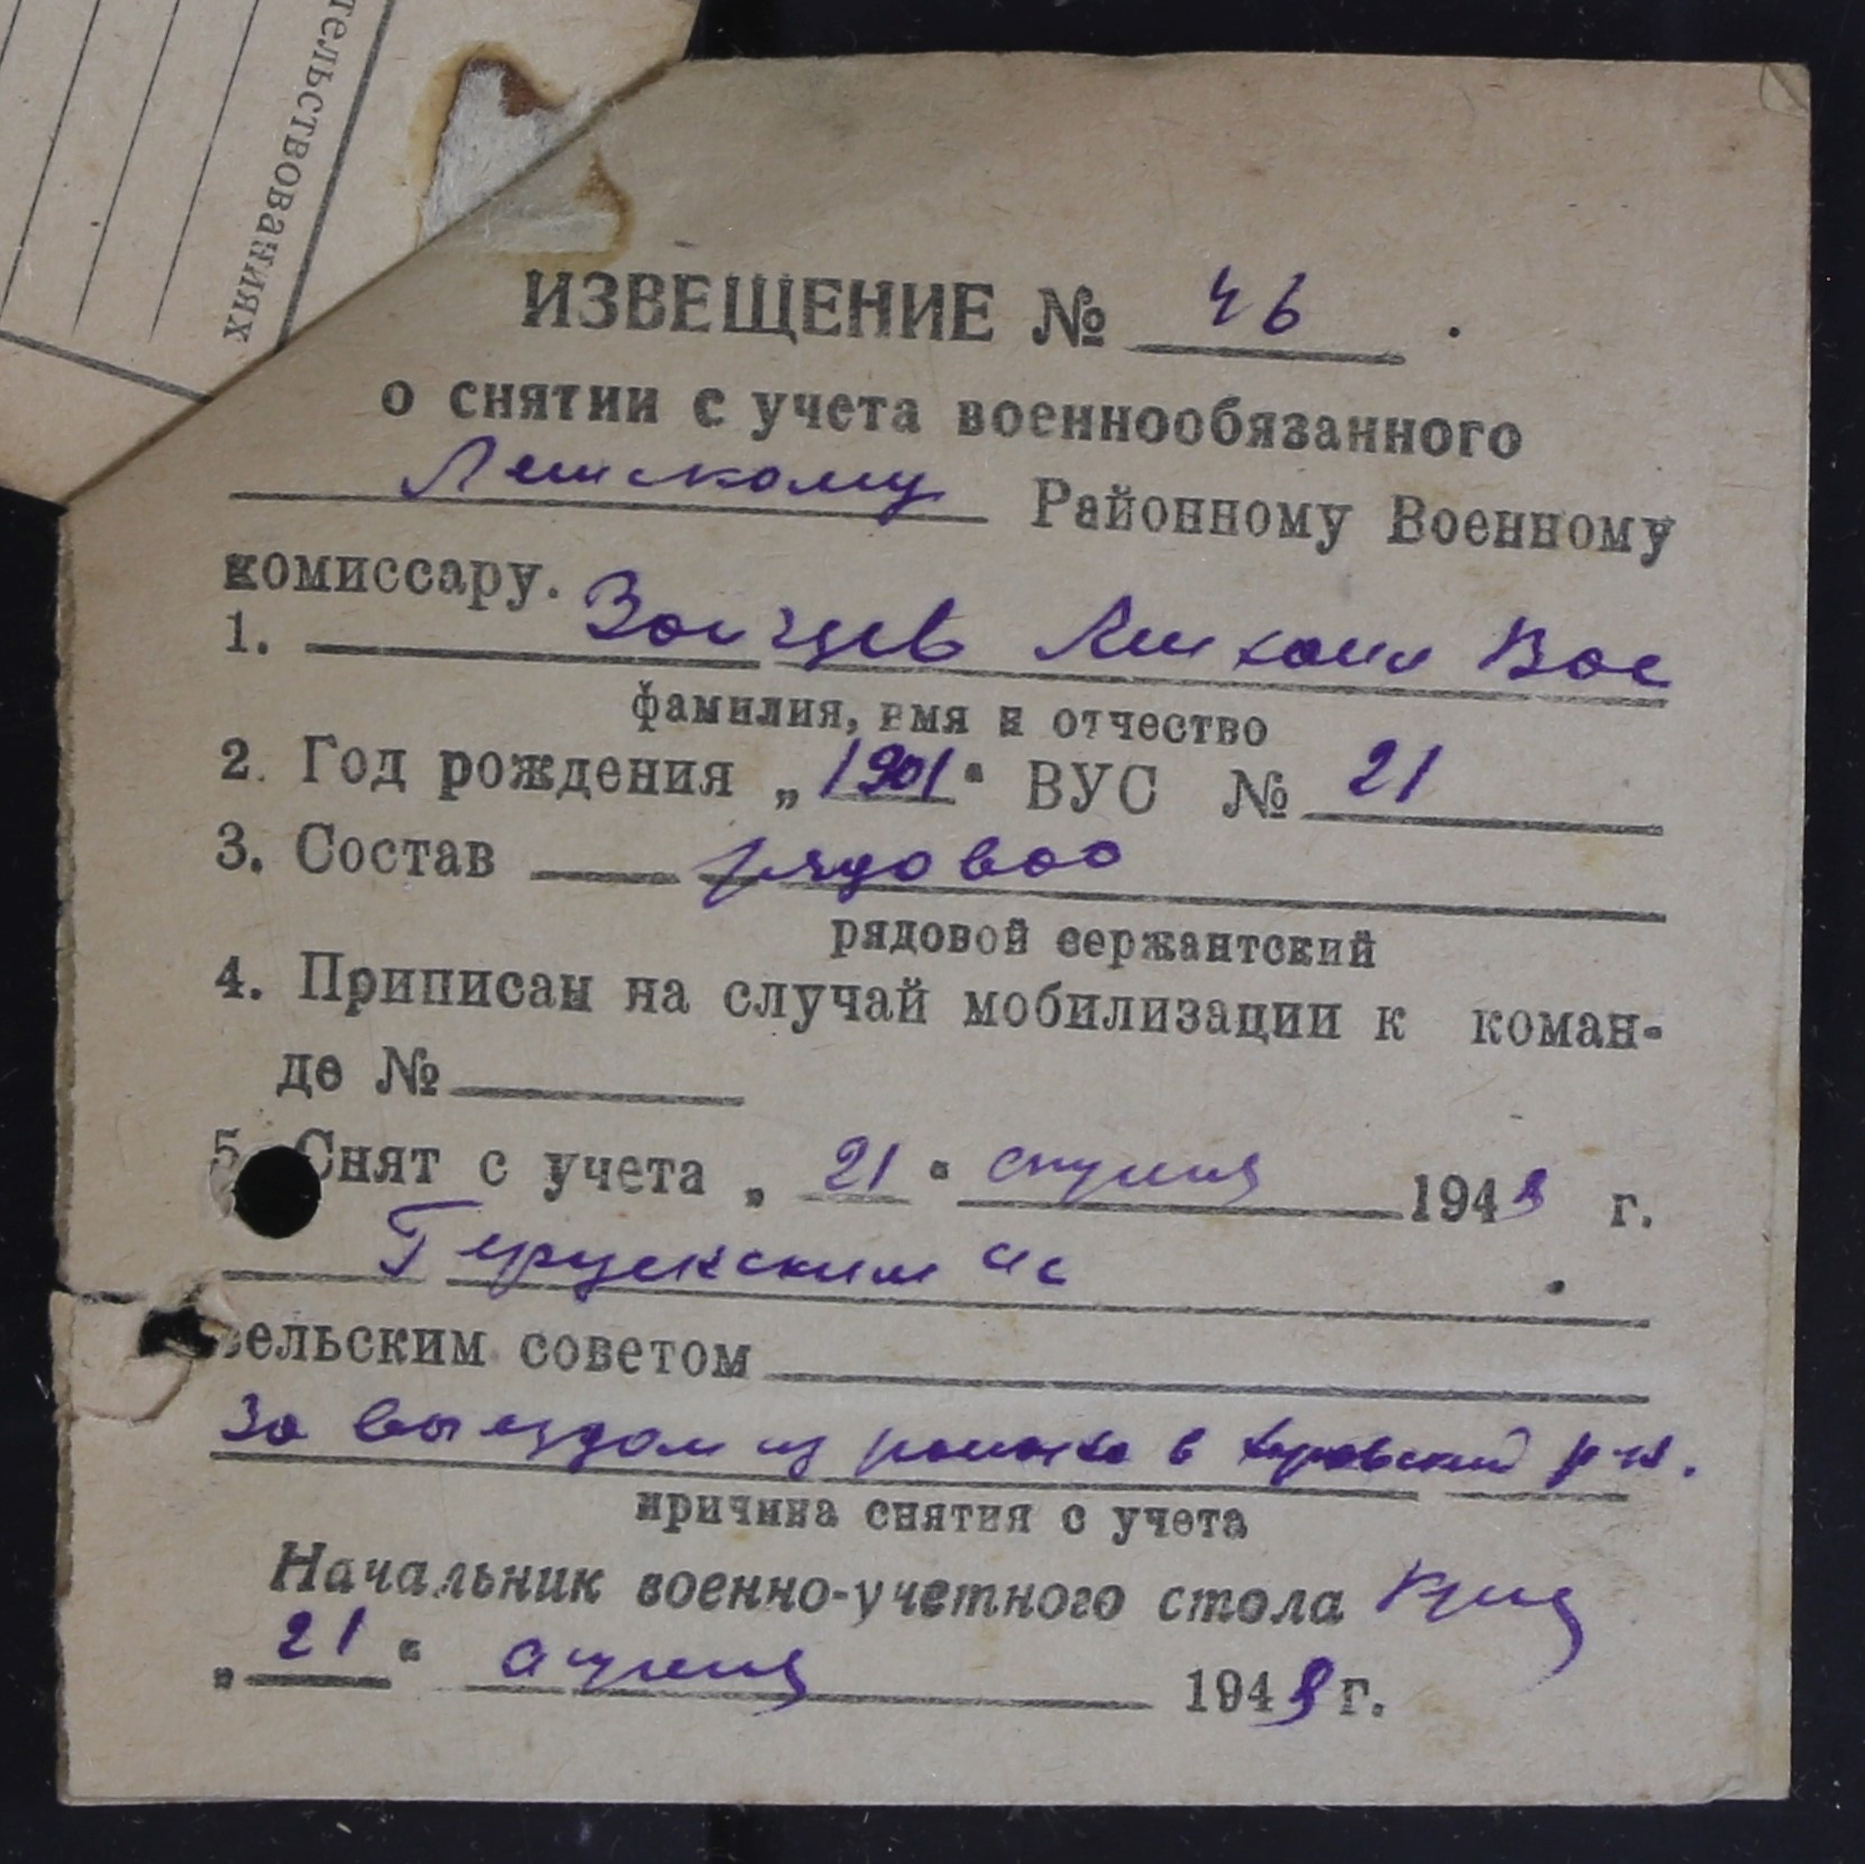 тельствованиях
ИЗВЕЩЕНИЕ № 46
о снятии с учета военнообязанного
Районному Военному
комиссару.
1. Михаил Вас
фамилия, имя и отчество
2. Год рождения „1901“ ВУС № 21
3. Состав рядовой
рядовой сержантский
4. Приписан на случай мобилизации к коман-
де №
5. Снят с учета „21“ апреля 1949 г.
сельским советом
За выездом из района в Кировский р-н.
причина снятия с учета
Начальник военно-учетного стола
„21“ апреля 1949 г.